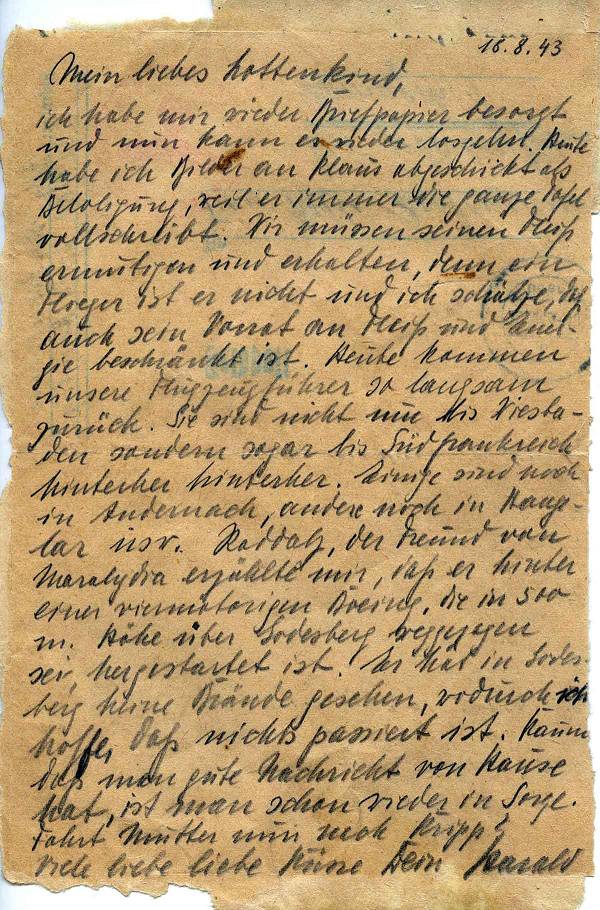 18.8.43
Mein liebes Lottenkind,
ich habe mir wieder Briefpapier besorgt
und nun kann es wieder losgehn. Heute
habe ich Bilder an Klaus abgeschickt als
weil er immer die ganze Tafel
vollschreibt. Wir müssen seinen Fleiß
ermutigen und erhalten, denn ein
Flieger ist er nicht und ich schätze, daß
auch sein Vorrat an Fleiß und Ener-
gie beschränkt ist. Heute kommen
unsere Flugzeugführer so langsam
zurück. Sie sind nicht nur bis Wiesba-
den sondern sogar bis Südfrankreich
hinterher hinterher. Einige sind noch
in Andernach, andere noch in Hange-
lar usw. Raddatz, der Freund von
Maralydia erzählte mir, daß er hinter
einer viermotorigen Boeing, die in 500
m. Höhe über Godesberg weggezogen
sei, hergestartet ist. Er hat in Godes-
berg keine Brände gesehen, wodurch ich
hoffe, daß nichts passiert ist. Kaum
daß man gute Nachricht von Hause
hat, ist man schon wieder in Sorge.
Fährt Mutter nun nach Kripp?
Viele liebe liebe Küsse Dein Harald